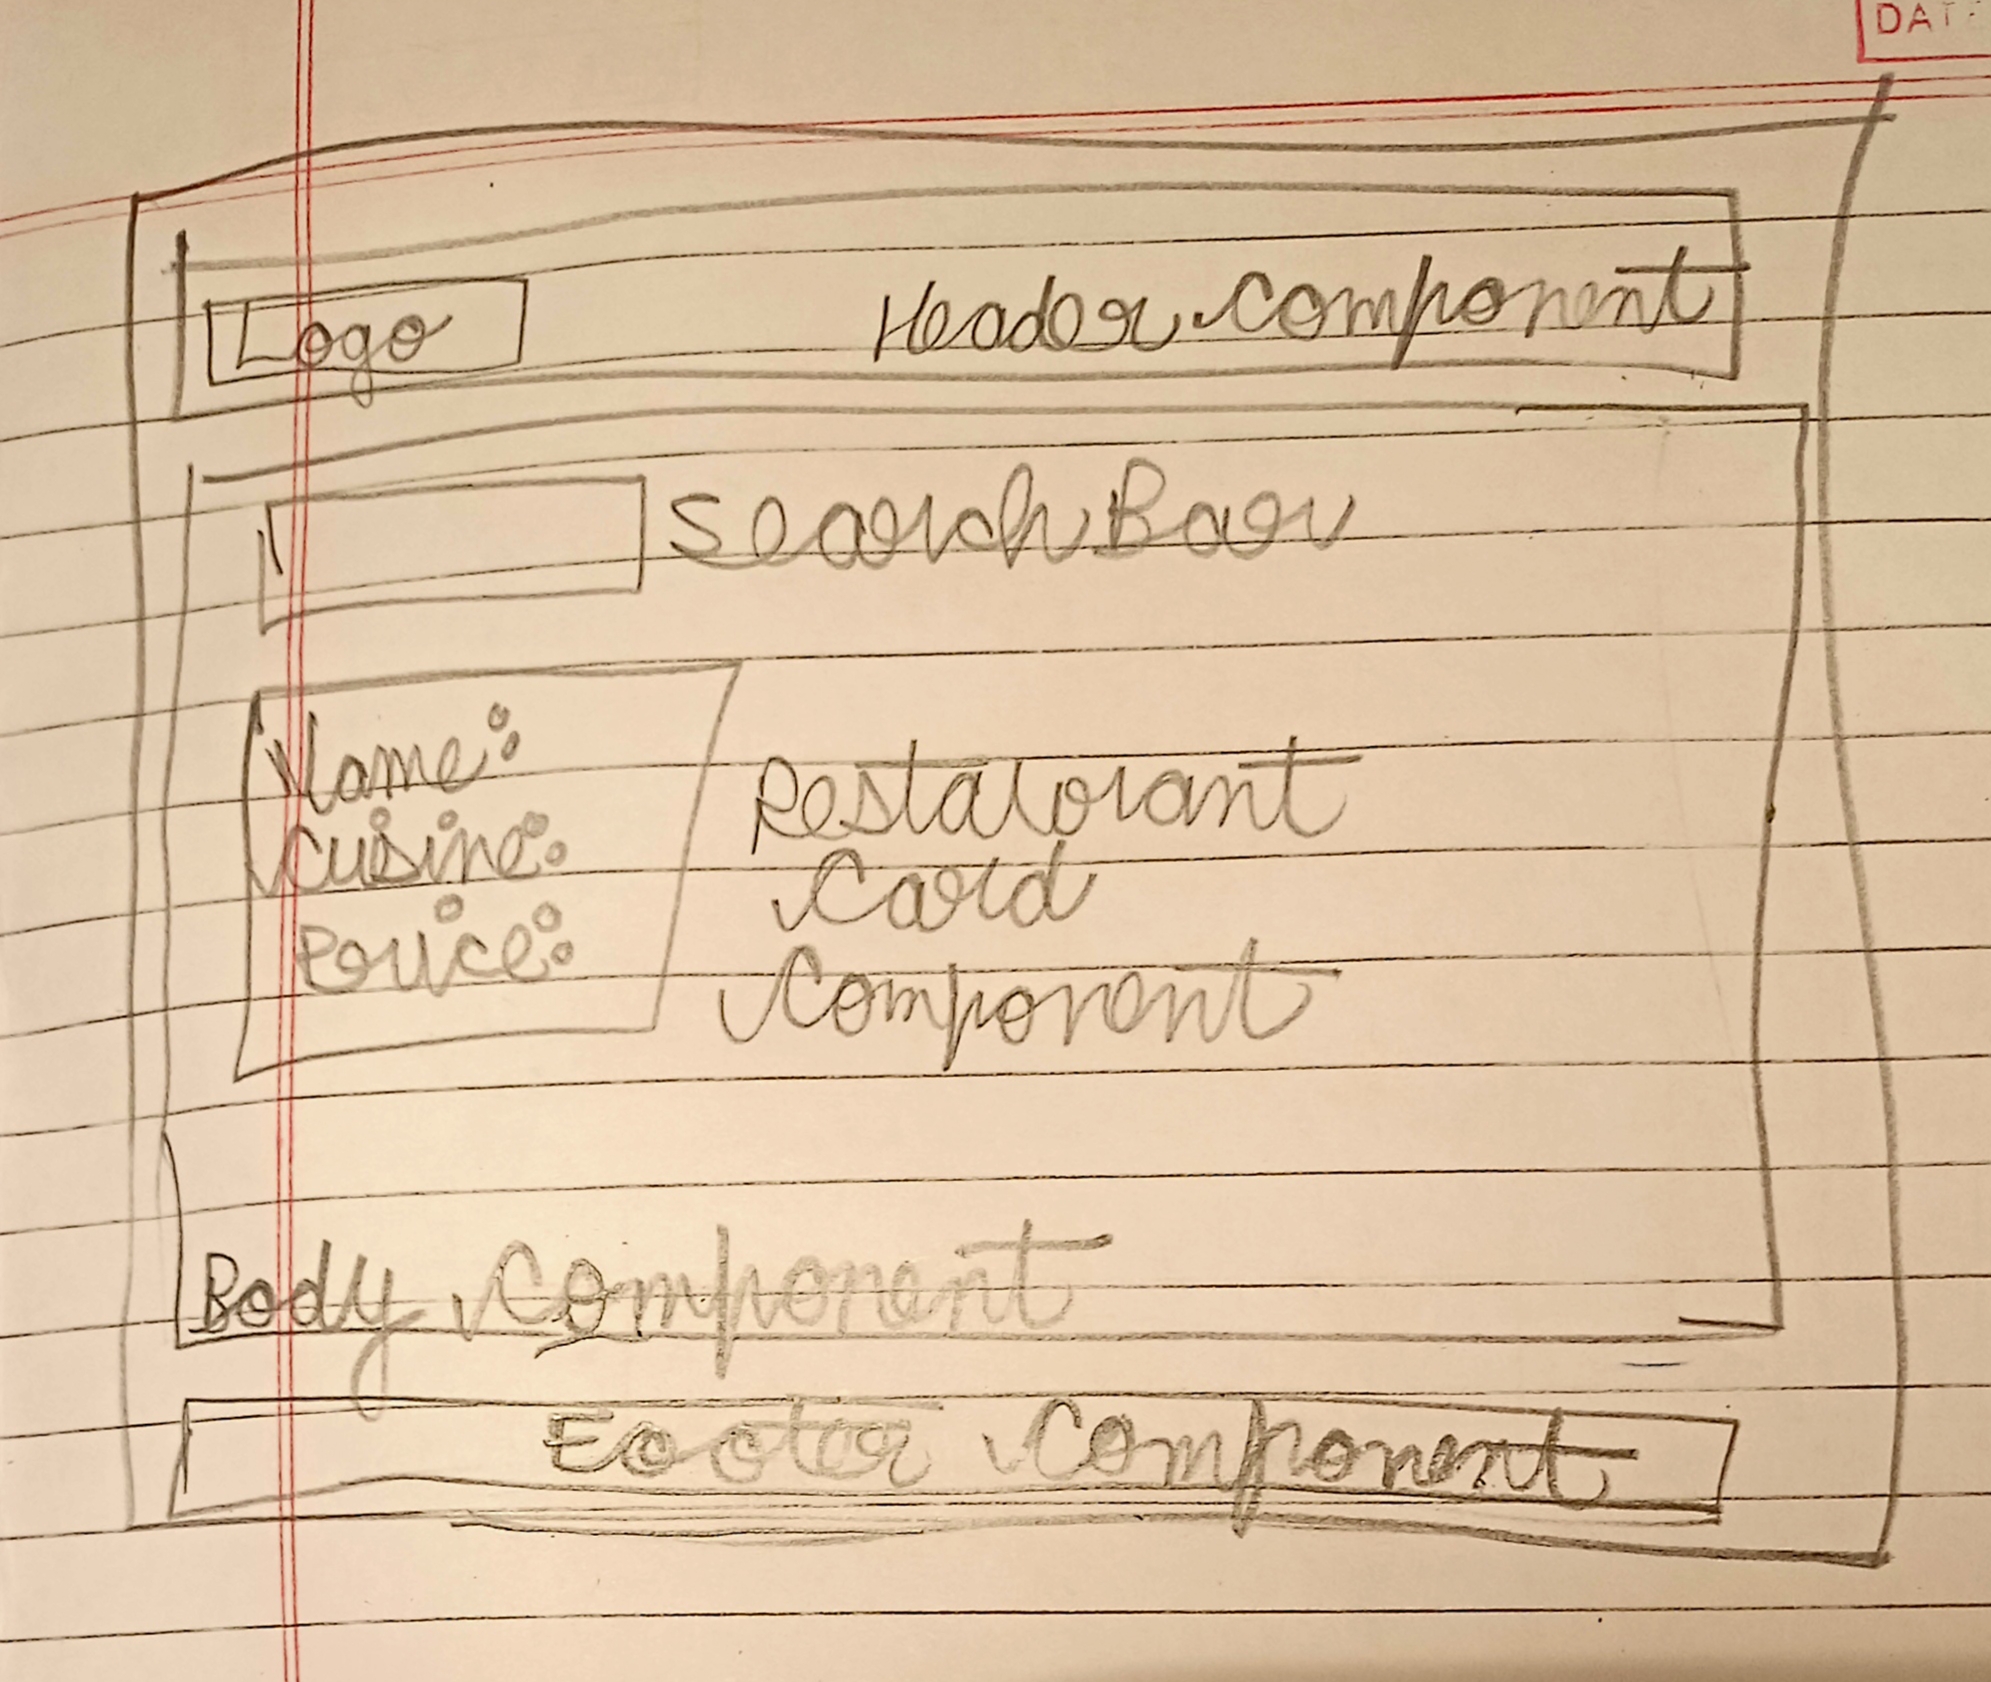 DATE
Logo
Header Component
Search Bar
Name:
Cuisine:
Price:
Restaurant
Card
Component
Body Component
Footer Component